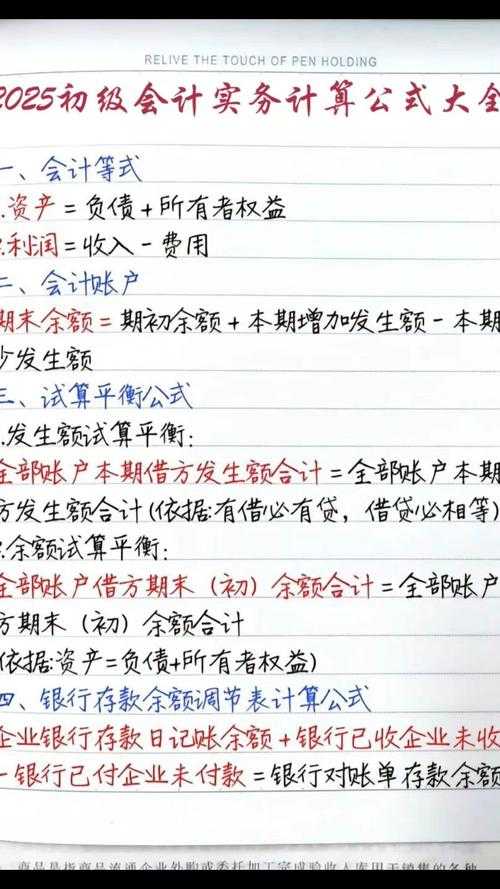 RELIVE THE TOUCH OF PEN HOLDING
2025初级会计实务计算公式大全
一、会计等式
.资产=负债+所有者权益
.利润=收入-费用
二、会计账户
期末余额=期初余额+本期增加发生额-本期
少发生额
三、试算平衡公式
.发生额试算平衡:
全部账户本期借方发生额合计=全部账户本期
方发生额合计(依据:有借必有贷,借贷必相等)
.余额试算平衡:
全部账户借方期末(初)余额合计=全部账户
方期末(初)余额合计
依据:资产=负债+所有者权益)
四、银行存款余额调节表计算公式
企业银行存款日记账余额+银行已收企业未收
-银行已付企业未付款=银行对账单存款余额
商品是指商品流通企业外购或委托加工完成验收入库用于销售的各种